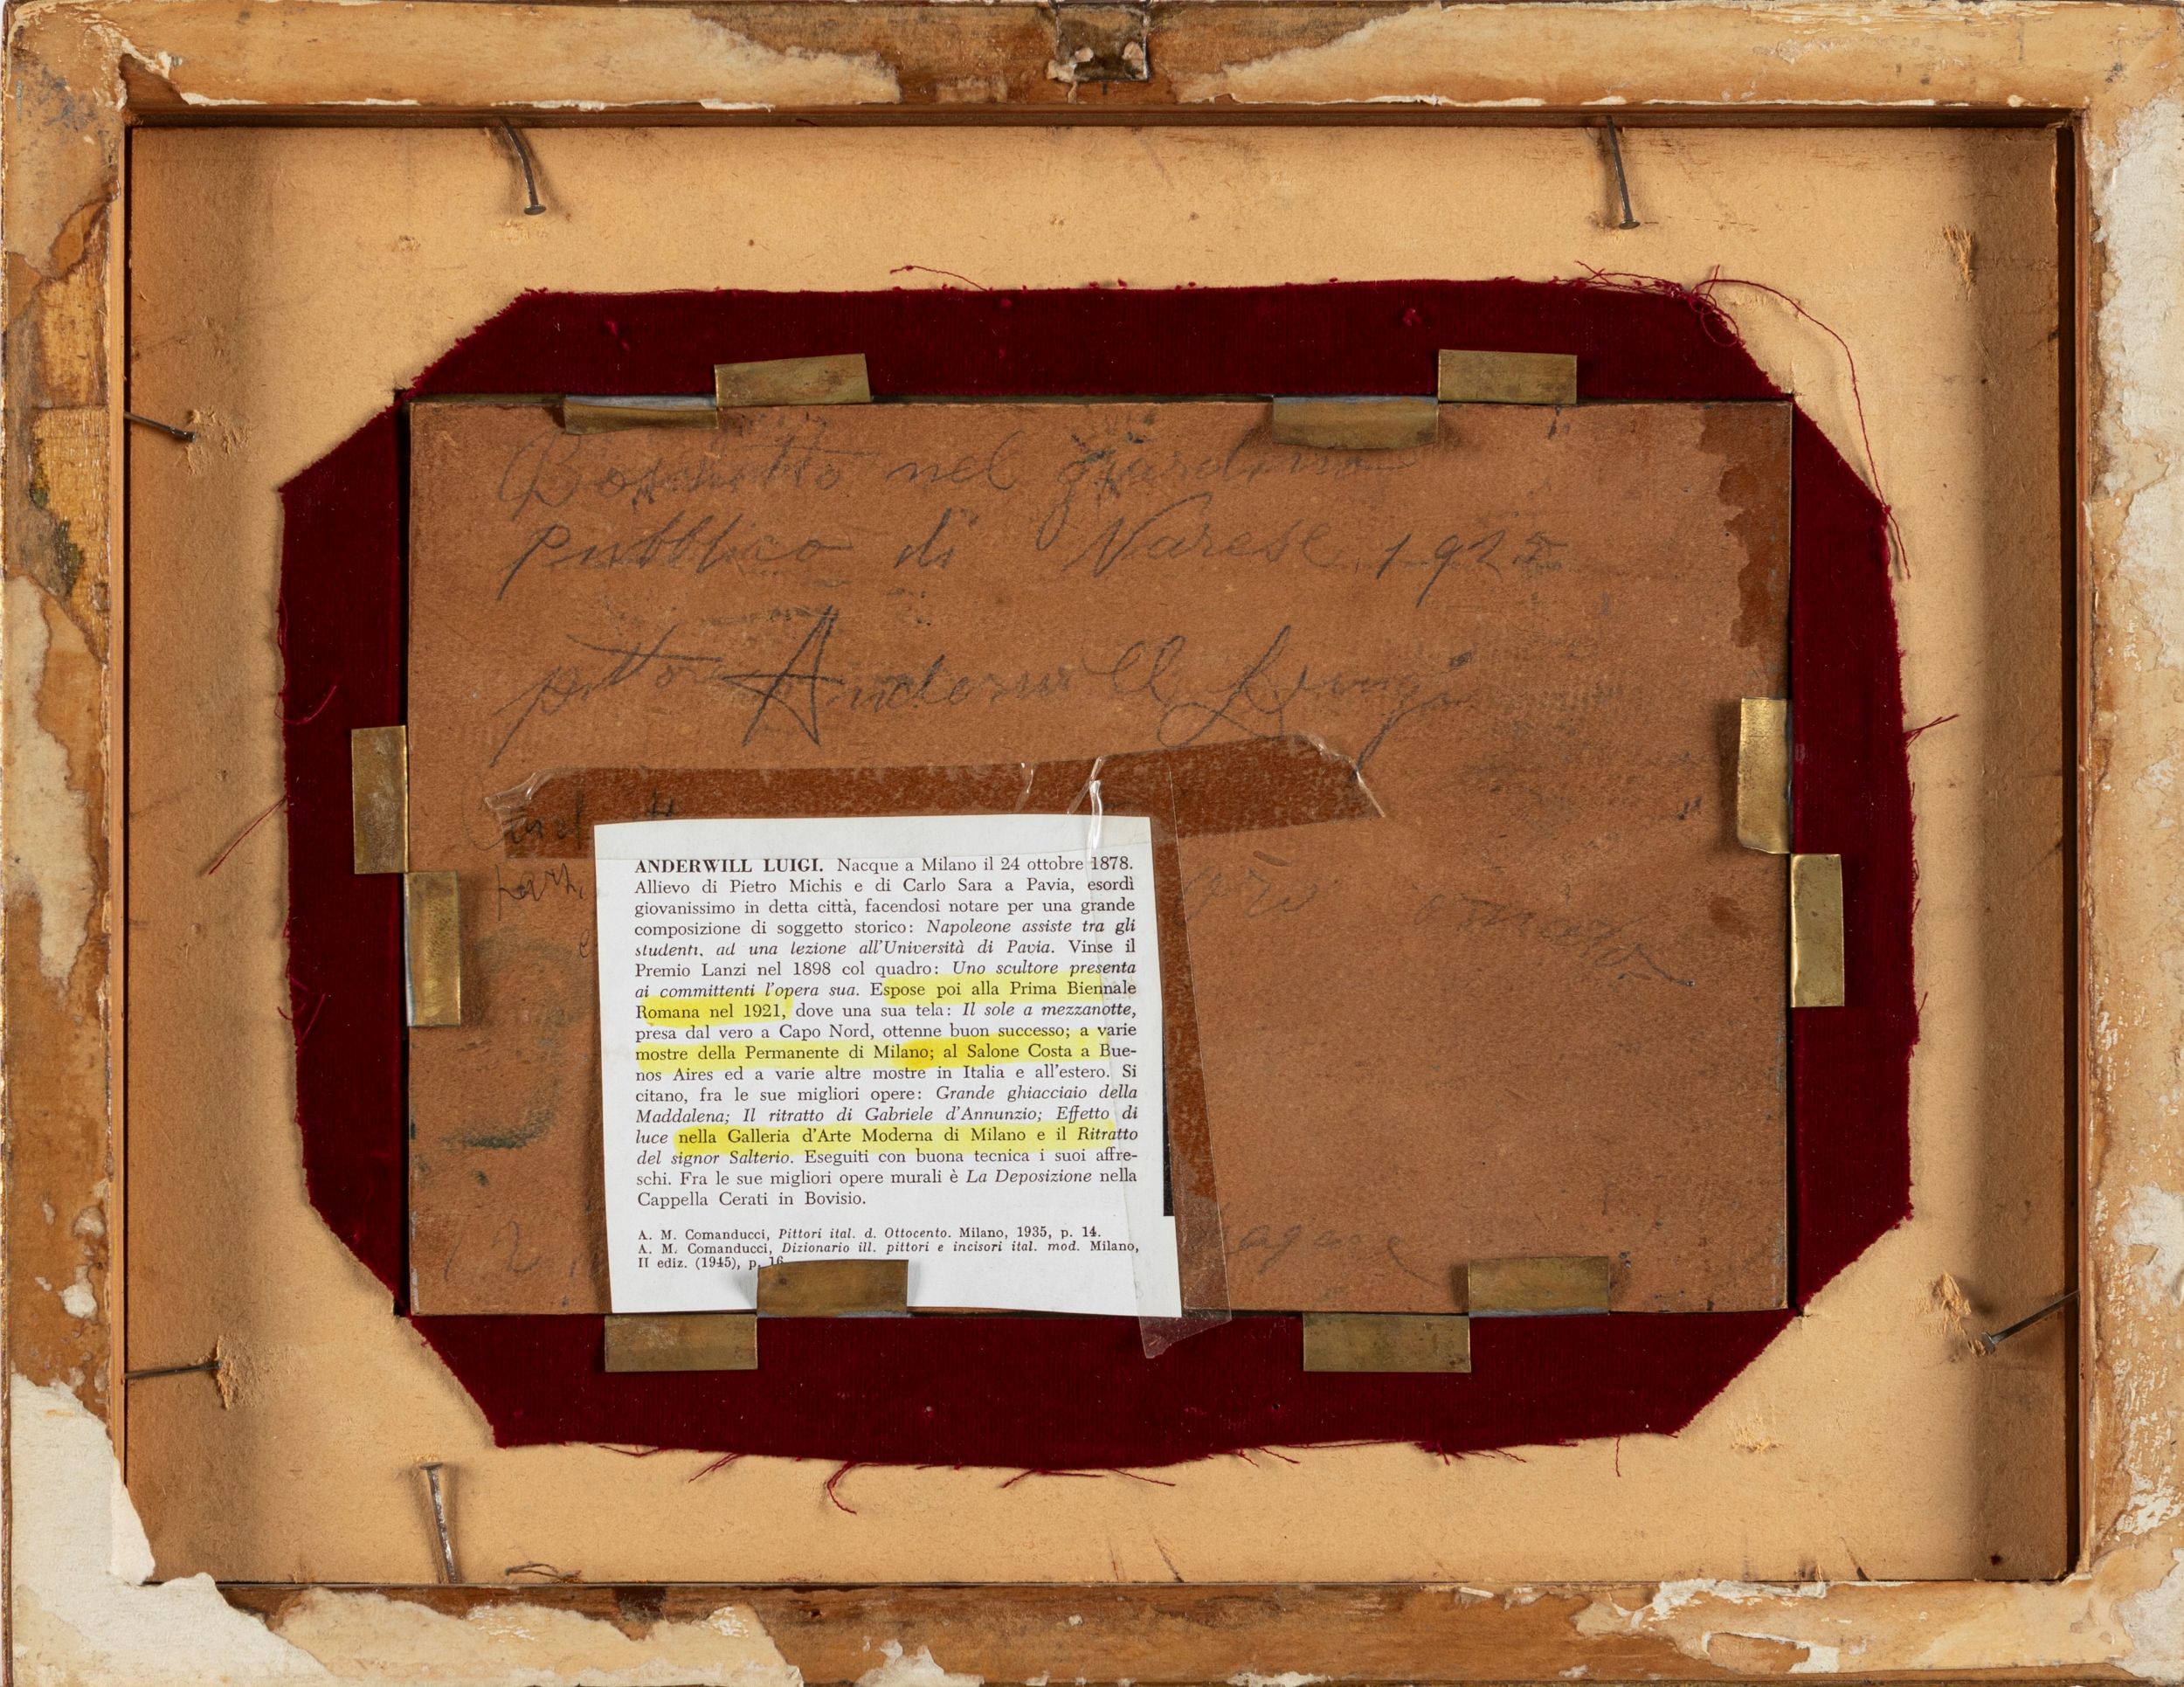 nel giardino
pubblico di Varese 192
pittore Anderwill Luigi
ANDERWILL LUIGI. Nacque a Milano il 24 ottobre 1878.
Allievo di Pietro Michis e di Carlo Sara a Pavia, esordì
giovanissimo in detta città, facendosi notare per una grande
composizione di soggetto storico: Napoleone assiste tra gli
studenti, ad una lezione all'Università di Pavia. Vinse il
Premio Lanzi nel 1898 col quadro: Uno scultore presenta
ai committenti l'opera sua. Espose poi alla Prima Biennale
Romana nel 1921, dove una sua tela: Il sole a mezzanotte,
presa dal vero a Capo Nord, ottenne buon successo; a varie
mostre della Permanente di Milano; al Salone Costa a Bue-
nos Aires ed a varie altre mostre in Italia e all'estero. Si
citano, fra le sue migliori opere: Grande ghiacciaio della
Maddalena; Il ritratto di Gabriele d'Annunzio; Effetto di
luce nella Galleria d'Arte Moderna di Milano e il Ritratto
del signor Salterio. Eseguiti con buona tecnica i suoi affre-
schi. Fra le sue migliori opere murali è La Deposizione nella
Cappella Cerati in Bovisio.
A. M. Comanducci, Pittori ital. d. Ottocento. Milano, 1935, p. 14.
A. M. Comanducci, Dizionario ill. pittori e incisori ital. mod. Milano,
II ediz. (1945), p. 16